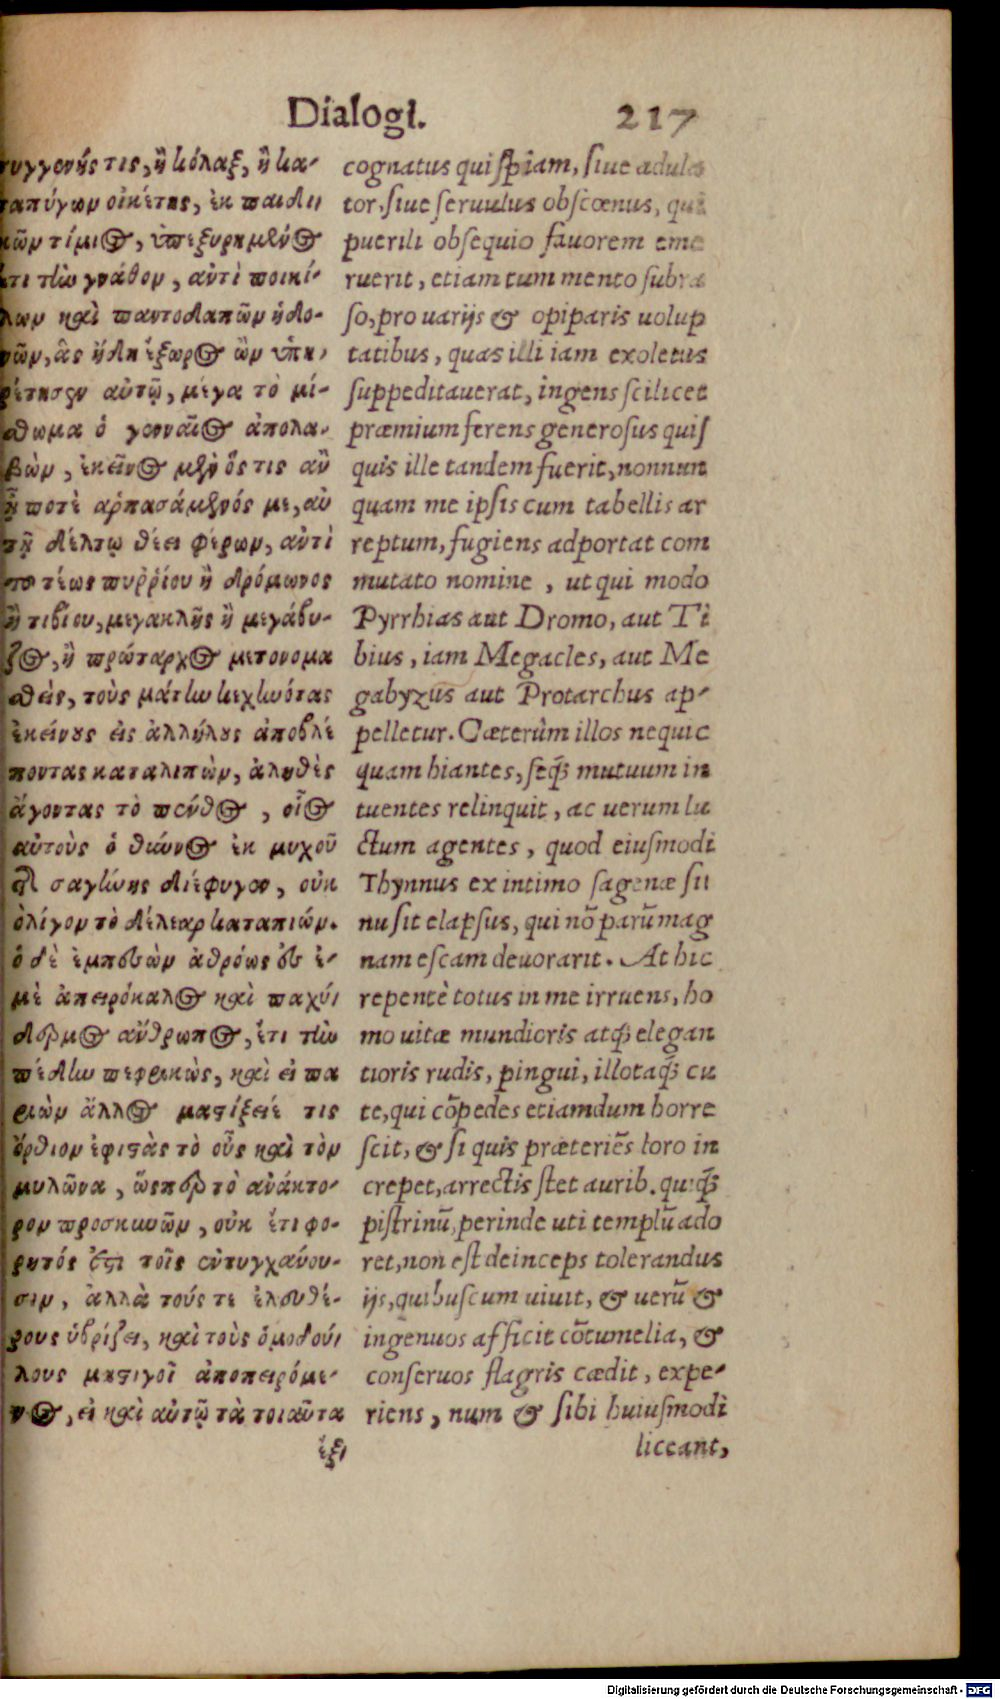 Dialogi. 217
συγγενής τις, ἢ κόλαξ, ἢ κα-
ταπύγων οἰκέτης, ἐκ παιδι
κῶν τίμιος, ὑπεξυρημένος
ἔτι τὴν γνάθον, ἀντὶ ποικί-
λων καὶ παντοδαπῶν ἡδο-
νῶν, ἃς ἤδη ἔξωρος ὢν ὑπη-
ρέτησεν αὐτῷ, μέγα τὸ μί-
σθωμα ὁ γενναῖος ἀπολα-
βὼν, ἐκεῖνος μὲν ὅς τις ἂν
ᾖ ποτὲ ἁρπασάμενός με, αὐ
τῇ δέλτῳ θέει φέρων, ἀντὶ
τοῦ τέως πυῤῥίου ἢ δρόμωνος
ἢ τιβίου, μεγακλῆς ἢ μεγάβυ-
ζος, ἢ πρώταρχος μετονομα
σθεὶς, τοὺς μάτην κεχηνότας
ἐκείνους εἰς ἀλλήλους ἀποβλέ
ποντας καταλιπὼν, ἀληθὲς
ἄγοντας τὸ πένθος, οἷος
αὐτοὺς ὁ θύννος ἐκ μυχοῦ
τῆς σαγήνης διέφυγεν, οὐκ
ὀλίγον τὸ δέλεαρ καταπιών.
ὁ δὲ ἐμπεσὼν ἀθρόως ἐς ἐ-
μὲ ἀπειρόκαλος καὶ παχύ-
δερμος ἄνθρωπος, ἔτι τὴν
πέδην πεφρικὼς, καὶ εἰ πα
ριὼν ἄλλος μαστίξειέ τις
ὄρθιον ἐφιστὰς τὸ οὖς καὶ τὸν
μυλῶνα, ὥσπερ τὸ ἀνάκτο-
ρον προσκυνῶν, οὐκ ἔτι φο-
ρητός ἐστι τοῖς ἐντυγχάνου-
σιν, ἀλλὰ τούς τε ἐλευθέ-
ρους ὑβρίζει, καὶ τοὺς ὁμοδού-
λους μαστιγοῖ ἀποπειρώμε-
νος, εἰ καὶ αὐτῷ τὰ τοιαῦτα
ἔξ-
cognatus quiſpiam, ſiue adula
tor, ſiue ſeruulus obſcœnus, qui
puerili obſequio fauorem eme
ruerit, etiam tum mento ſubra
ſo, pro uarijs & opiparis uolup
tatibus, quas illi iam exoletus
ſuppeditauerat, ingens ſcilicet
præmium ferens generoſus quiſ
quis ille tandem fuerit, nonnun
quam me ipſis cum tabellis ar
reptum, fugiens adportat com
mutato nomine, ut qui modo
Pyrrhias aut Dromo, aut Ti
bius, iam Megacles, aut Me
gabyzus aut Protarchus ap-
pelletur. Cæterùm illos nequic
quam hiantes, ſeq́; mutuum in
tuentes relinquit, ac uerum lu
ctum agentes, quod eiuſmodi
Thynnus ex intimo ſagenæ ſi
nu ſit elapſus, qui nõ parũ mag
nam eſcam deuorarit. At hic
repentè totus in me irruens, ho
mo uitæ mundioris atq́; elegan
tioris rudis, pingui, illotaq́; cu
te, qui cõpedes etiamdum horre
ſcit, & ſi quis præteriẽs loro in
crepet, arrectis ſtet aurib. quiq́;
piſtrinũ, perinde uti templũ ado
ret, non eſt deinceps tolerandus
ijs, quibuſcum uiuit, & uerũ &
ingenuos afficit cõtumelia, &
conſeruos flagris cædit, expe-
riens, num & ſibi huiuſmodi
liceant,
Digitalisierung gefördert durch die Deutsche Forschungsgemeinschaft - DFG